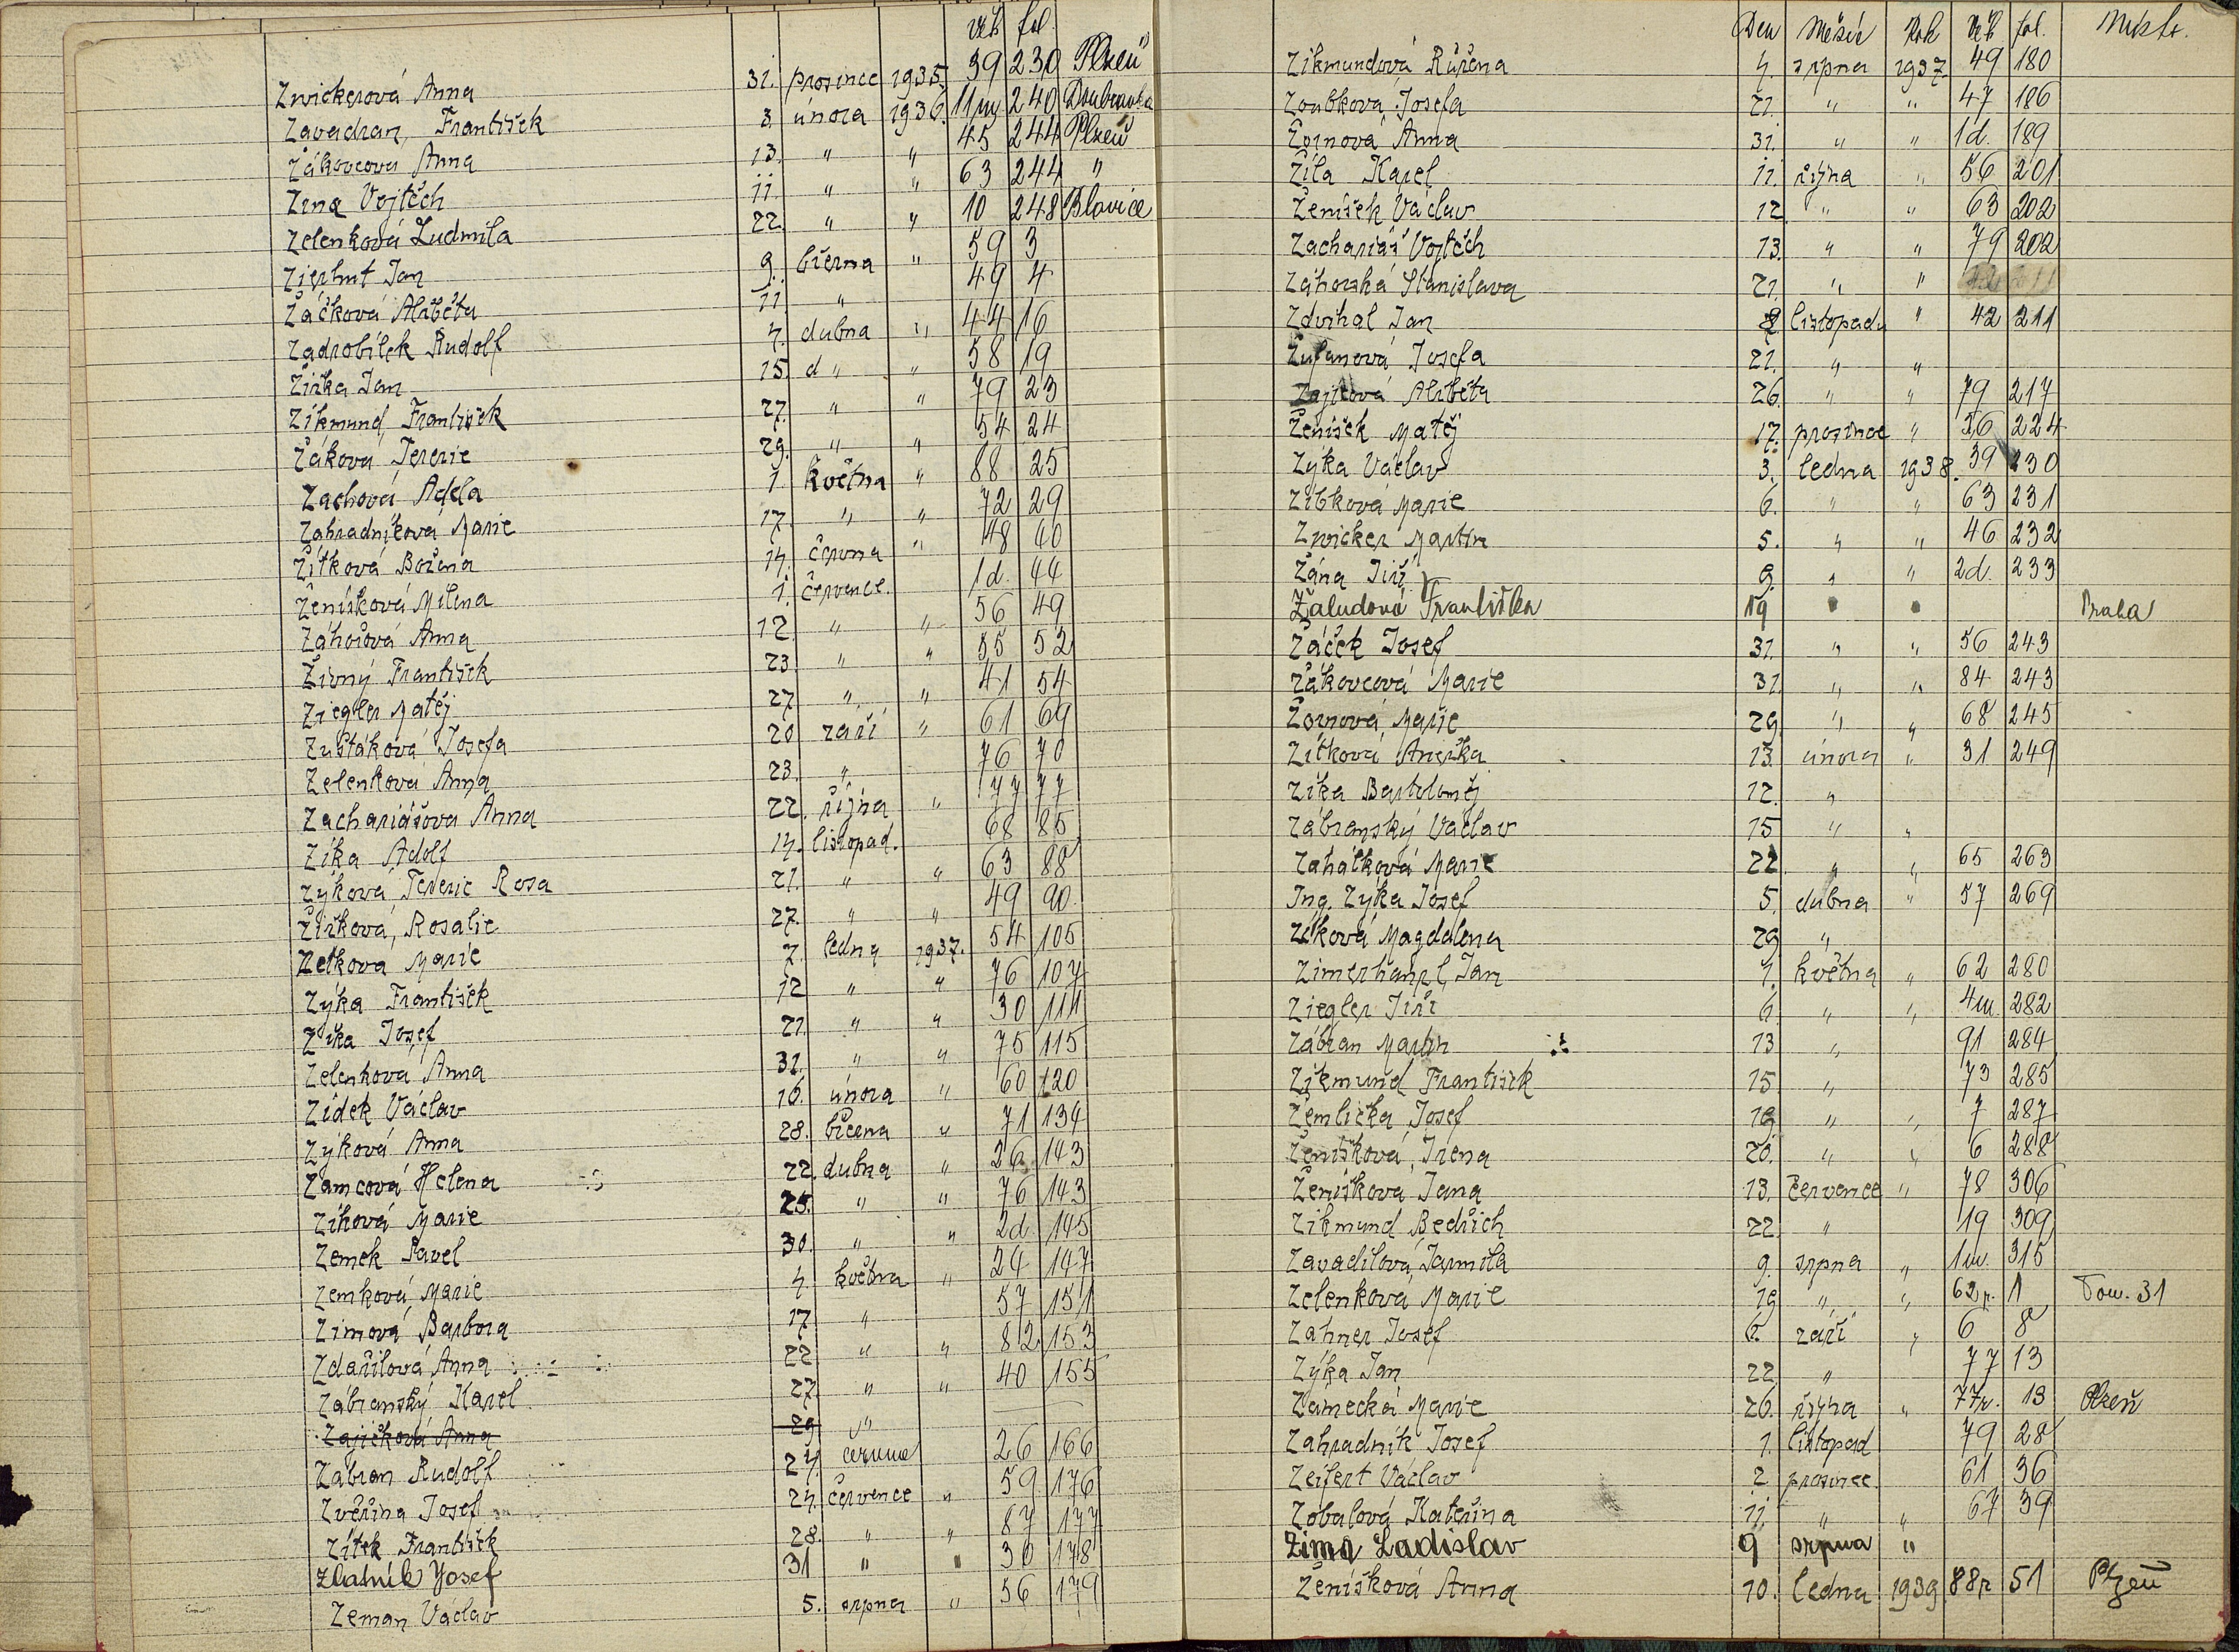 věk fol.
Zwickerová Anna 31. prosince 1935 39 230 Plzeň
Zavadran, František 3. února 1936. 11m 240 Doubravka
Žákovcova Anna 13. " " 45 244 Plzeň
Zema Vojtěch 11. " " 63 244 "
Zelenková Ludmila 22. " " 10 248 Blovice
Zierhut Jan 9. března " 59 3
Žáčková Alžběta 11. " 49 4
Zadrobílek Rudolf 4. dubna " 44 16
Žižka Jan 15. d " " 58 19
Zikmund František 27. " " 79 23
Žáková Terezie 29. " " 54 24
Zachová Adéla 1 května " 88 25
Zahradníková Marie 17. " " 72 29
Žítková Božena 14. června " 48 40
Ženíšková Milena 1. července. 1d. 44
Záhořová Anna 12. " " 56 49
Živný František 23. " " 55 52
Ziegler Matěj 27 " " 41 54
Zušťáková Josefa 20 září " 61 69
Zelenková Anna 23. " 76 70
Zachariášova Anna 22. října " 77 77
Zíka Adolf 14. listopad. 68 85
Zýková, Terezie Rosa 21. " " 63 88
Žižková, Rosalie 27. " " 49 90
Zetkova Marie 7. ledna 1937. 54 105
Zýka František 12 " " 76 107
Zíka Josef 21. " " 30 111
Zelenkova Anna 31. " " 75 115
Zídek Václav 16. února " 60 120
Zýková Anna 28. března " 71 134
Zamcová Helena 22. dubna " 26 143
Zíková Marie 25. " " 76 143
Zemek Pavel 30. " " 2d. 145
Zemková, Marie 4. května " 24 147
Zimová Barbora 17 " 57 151
Zdařilová Anna 22 " " 82 153
Zábranský Karel 27. " " 40 155
Zajíčková Anna 29 "
Zábran Rudolf 24. června 26 166
Zvěřina Josef 24. července " 59 176
Zítek František 28. " " 87 177
Zlatník Josef 31 " " 30 178
Zeman Václav 5. srpna " 56 179
Den Měsíc Rok Věk fol. Místo.
Zikmundová Růžena 4. srpna 1937. 49 180
Zoubková Josefa 21. " " 47 186
Žornová Anna 31. " " 1d. 189
Žíla Karel 11. října " 56 201
Ženíšek Václav 12 " " 63 202
Zachariáš Vojtěch 13. " " 79 202
Záhorská Stanislava 21. " "
Zdvihal Jan 8 listopadu " 42 211
Žufanová Josefa 21. " "
Zajícová Alžběta 26. " " 79 217
Ženíšek Matěj 17. prosince " 36 224
Zýka Václav 3. ledna 1938. 39 230
Zíbková Marie 6. " " 63 231
Zwicker Martin 5. " " 46 232
Zána Jiří 9. " " 2d. 233
Žaludová Františka 19 " " Praha
Žáček Josef 31. " " 56 243
Žákovcová Marie 31. " " 84 243
Žornová, Marie 29. " " 68 245
Zítkova Anežka 13. února " 31 249
Zíka Bartoloměj 12. "
Zábranský Václav 15 " "
Zahálková Marie 22 " " 65 263
Ing. Zýka Josef 5. dubna " 57 269
Zíková Magdalena 29 "
Zimerhanzl, Jan 1. května " 62 280
Ziegler Jiří 6. " " 4m. 282
Zábran Martin 13 " 91 284
Zikmund František 15. " 73 285
Žemlička Josef 19 " " 7 287
Ženíšková, Irena 20. " " 6 288
Ženíškova Jana 13. července " 78 306
Zikmund Bedřich 22. " 19 309
Zavadilová, Jarmila 9. srpna " 1m. 315
Zelenková Marie 19 " " 62r. 1 Tom. 31
Zahner Josef 6. září " 6 8
Zýka Jan 22 " 77 13
Zámecká Marie 26. října " 77r. 13 Plzeň
Zahradník Josef 1. listopad 79 28
Zeifert Václav 2 prosince. 61 36
Zobalová Kateřina 11. " " 67 39
Zima Ladislav 9 srpna "
Ženíšková Anna 10. ledna 1939 88r 51 Plzeň